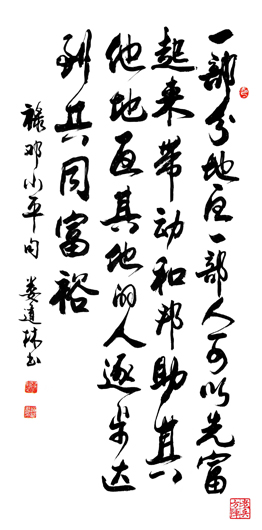 一部分地区一部人可以先富
起来带动和邦助其
他地区其他的人逐步达
到共同富裕
录邓小平句 娄道林书